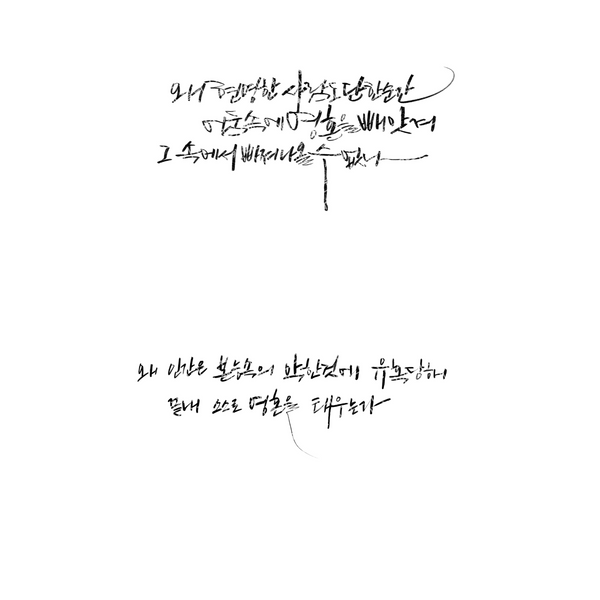 왜 현명한 사람도 단 한순간
어둠속에 영혼을 빼앗겨
그 속에서 빠져나올 수 없나
왜 인간은 본능속의 악한것에 유혹당해
끝내 스스로 영혼을 태우는가